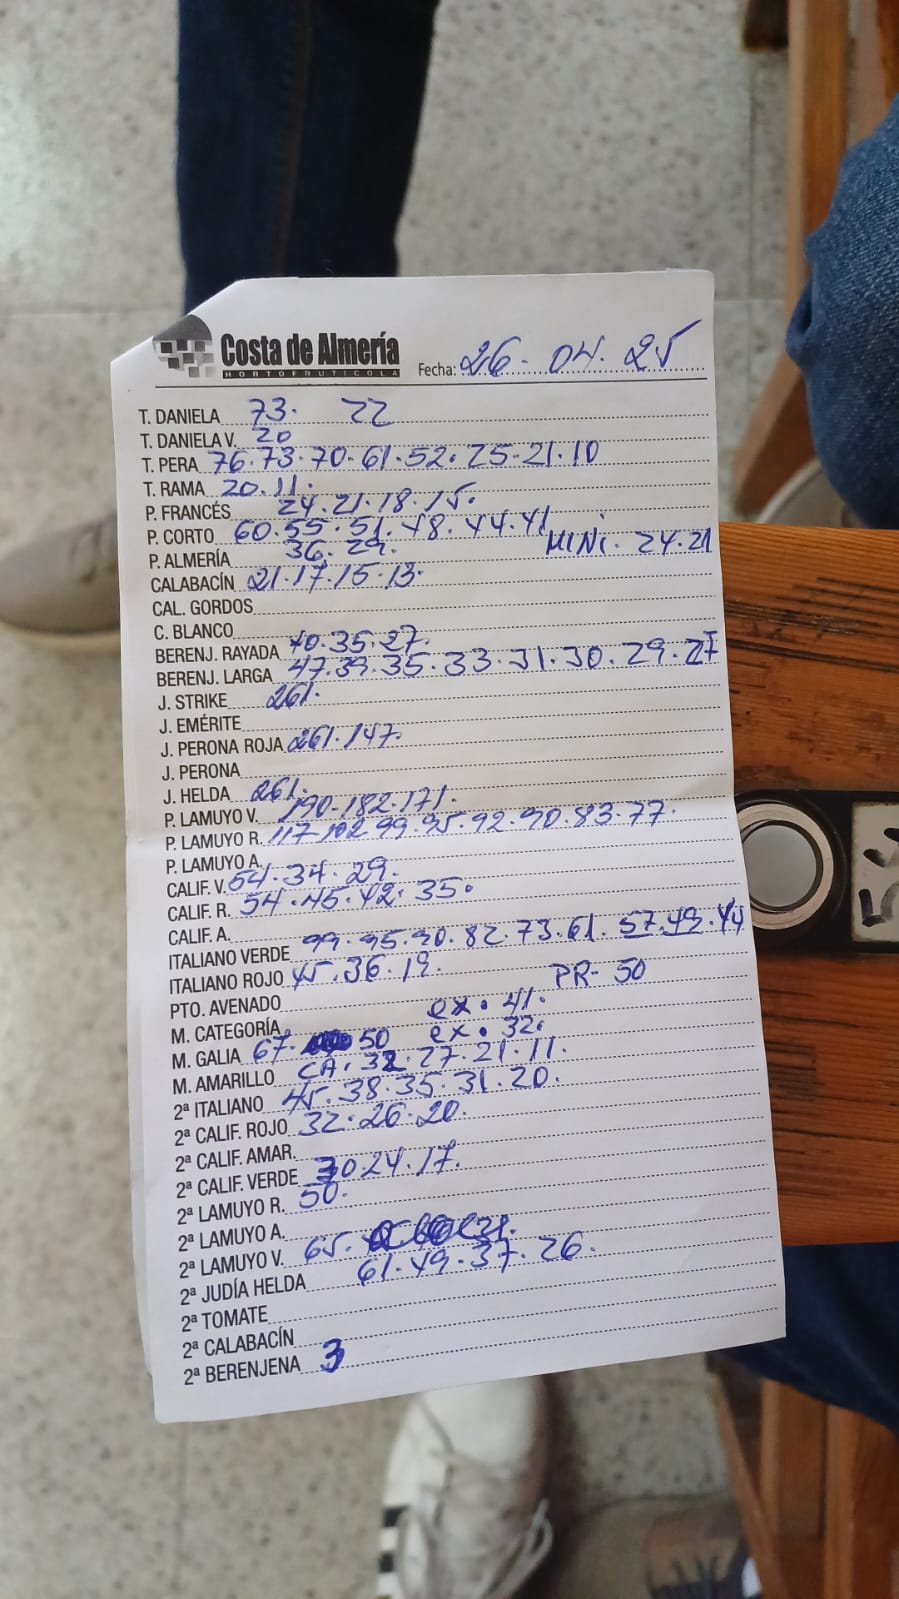 Costa de Almería
HORTOFRUTICOLA
Fecha: 26-04.25
T. DANIELA 73. 22
T. DANIELA V. 20
T. PERA 76.73.70.61.52.25.21.10
T. RAMA 20.11.
P. FRANCÉS 24.21.18.15.
P. CORTO 60.55.51.48.44.41
P. ALMERÍA 36.29. MINI. 24.21
CALABACÍN 21.17.15.13.
CAL. GORDOS
C. BLANCO
BERENJ. RAYADA 40.35.27.
BERENJ. LARGA 47.39.35.33.31.30.29.27
J. STRIKE 261.
J. EMÉRITE
J. PERONA ROJA 261.147.
J. PERONA
J. HELDA 261.
P. LAMUYO V. 190-182.171.
P. LAMUYO R. 117-102.99.95.92.90.83.77.
P. LAMUYO A.
CALIF. V. 54.34.29.
CALIF. R. 54.45.42.35.
CALIF. A.
ITALIANO VERDE 99.95.90.82.73.61.57.49.44
ITALIANO ROJO 45.36.19.
PTO. AVENADO PR- 50
M. CATEGORÍA ex. 41.
M. GALIA 67. 50 ex. 32.
M. AMARILLO CA. 32.27.21.11.
2ª ITALIANO 45.38.35.31.20.
2ª CALIF. ROJO 32.26.20.
2ª CALIF. AMAR.
2ª CALIF. VERDE 30 24.17.
2ª LAMUYO R. 50.
2ª LAMUYO A.
2ª LAMUYO V. 65.
2ª JUDÍA HELDA 61.49.37.26.
2ª TOMATE
2ª CALABACÍN
2ª BERENJENA 3